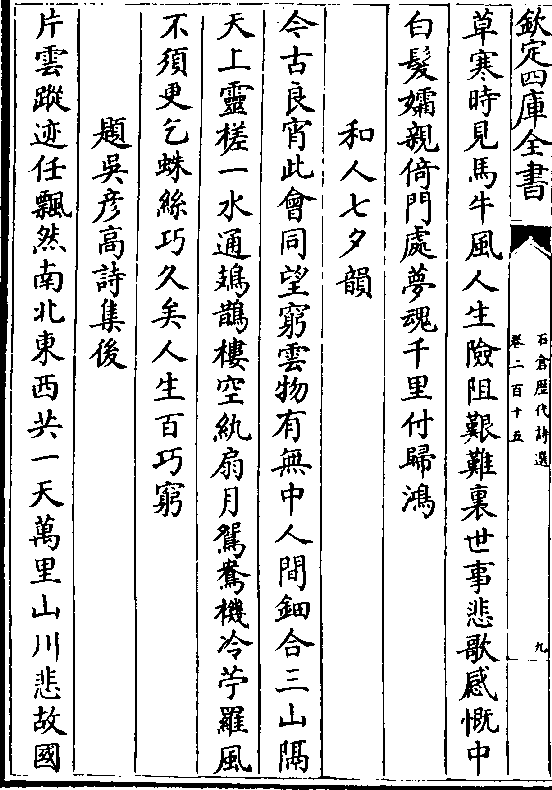 欽定四庫全書
石倉歷代詩選
卷二百十五
九
草寒時見馬牛風人生險阻艱難裏世事悲歌感慨中
白髮孀親倚門處夢魂千里付歸鴻
和人七夕韻
今古良宵此會同望窮雲物有無中人間鈿合三山隔
天上靈槎一水通鳷鵲樓空紈扇月鴛鴦機冷苧羅風
不須更乞蛛絲巧久矣人生百巧窮
題吳彥高詩集後
片雲蹤迹任飄然南北東西共一天萬里山川悲故國